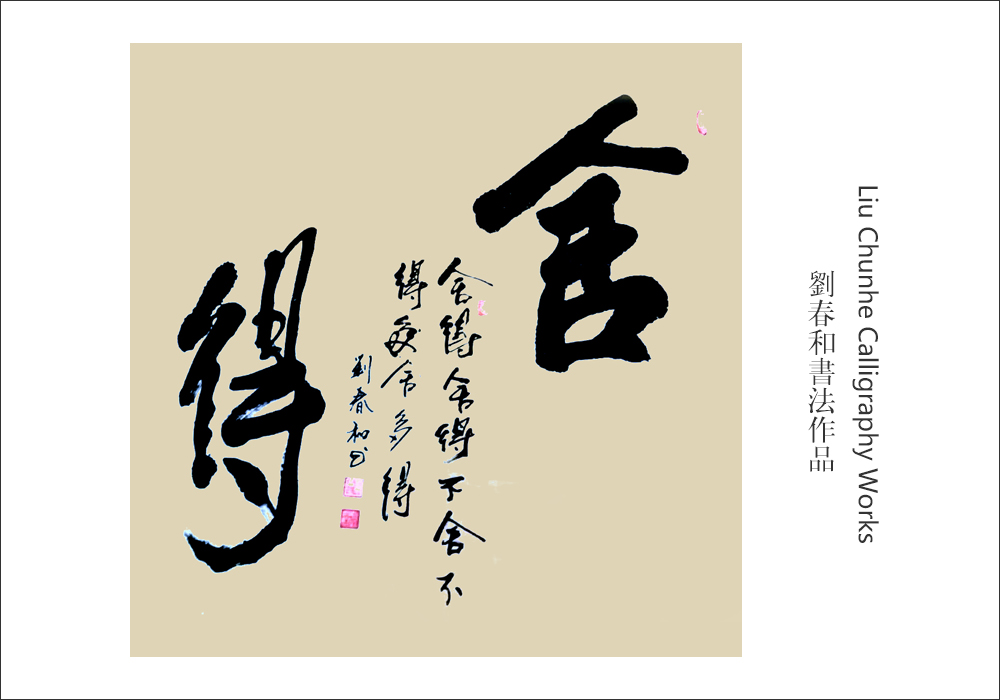 舍
得
舍得舍得不舍不
得舍多得
刘春和书
劉春和書法作品
Liu Chunhe Calligraphy Works